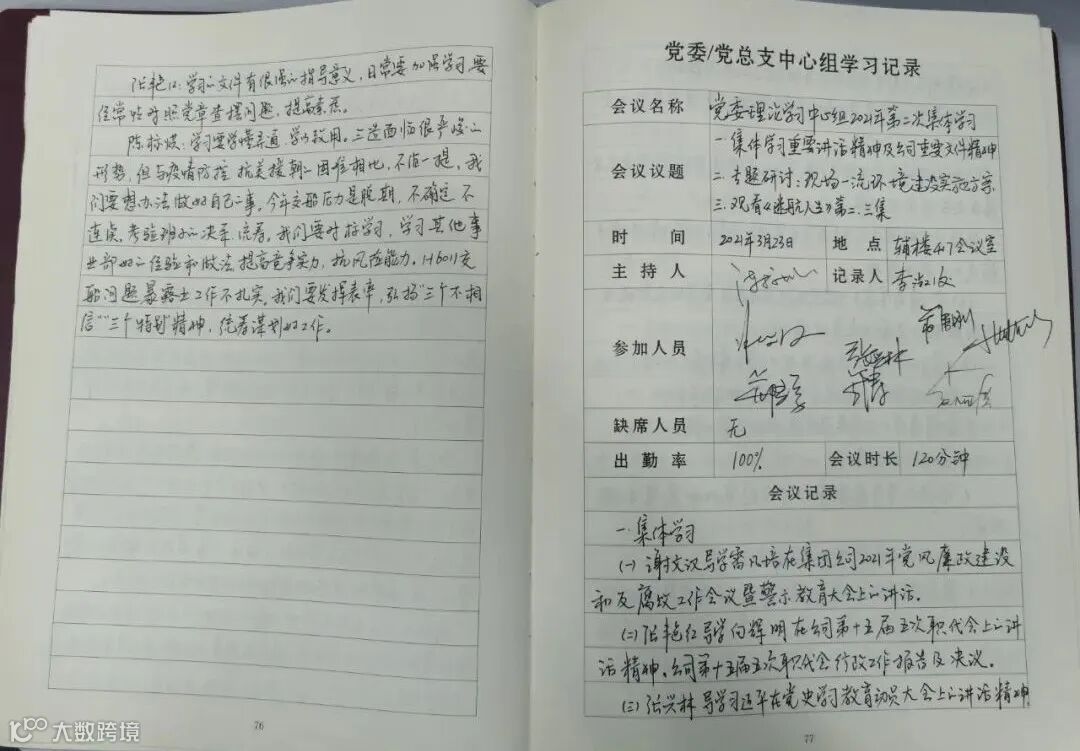 张艳红：学习的文件有很强的指导意义，日常要加强学习，要
经常性对照党章查摆问题，提高素质。
陈标洪：学习要学懂弄通，学以致用。三造面临很严峻的
形势，但与疫情防控、抗美援朝的困难相比，不值一提。我
们要想办法做好自己的事。今年交船压力是脱期，不确定，不
连贯，考验班子的决策、统筹。我们要对标学习，学习其他事
业部好的经验和做法，提高竞争实力，抗风险能力。H6011交
船问题暴露出工作不扎实，我们要发挥表率，弘扬“三个不相
信”“三个特别”精神，统筹谋划好工作。
76
党委/党总支中心组学习记录
会议名称 党委理论学习中心组2021年第二次集体学习
会议议题 一、集体学习重要讲话精神及公司重要文件精神
二、专题研讨：现场一流环境建设实施方案
三、观看《迷航人生》第二、三集
时 间 2021年3月23日 地 点 辅楼417会议室
主 持 人 记录人 李
参加人员
张兴林
缺席人员 无
出 勤 率 100% 会议时长 120分钟
会议记录
一、集体学习
(一) 谢文汉导学雷凡培在集团公司2021年党风廉政建设
和反腐败工作会议暨警示教育大会上的讲话。
(二) 张艳红导学向辉明在公司第十五届五次职代会上的讲
话精神、公司第十五届五次职代会行政工作报告及决议。
(三) 张兴林导学习近平在党史学习教育动员大会上的讲话精神
77
大数跨境